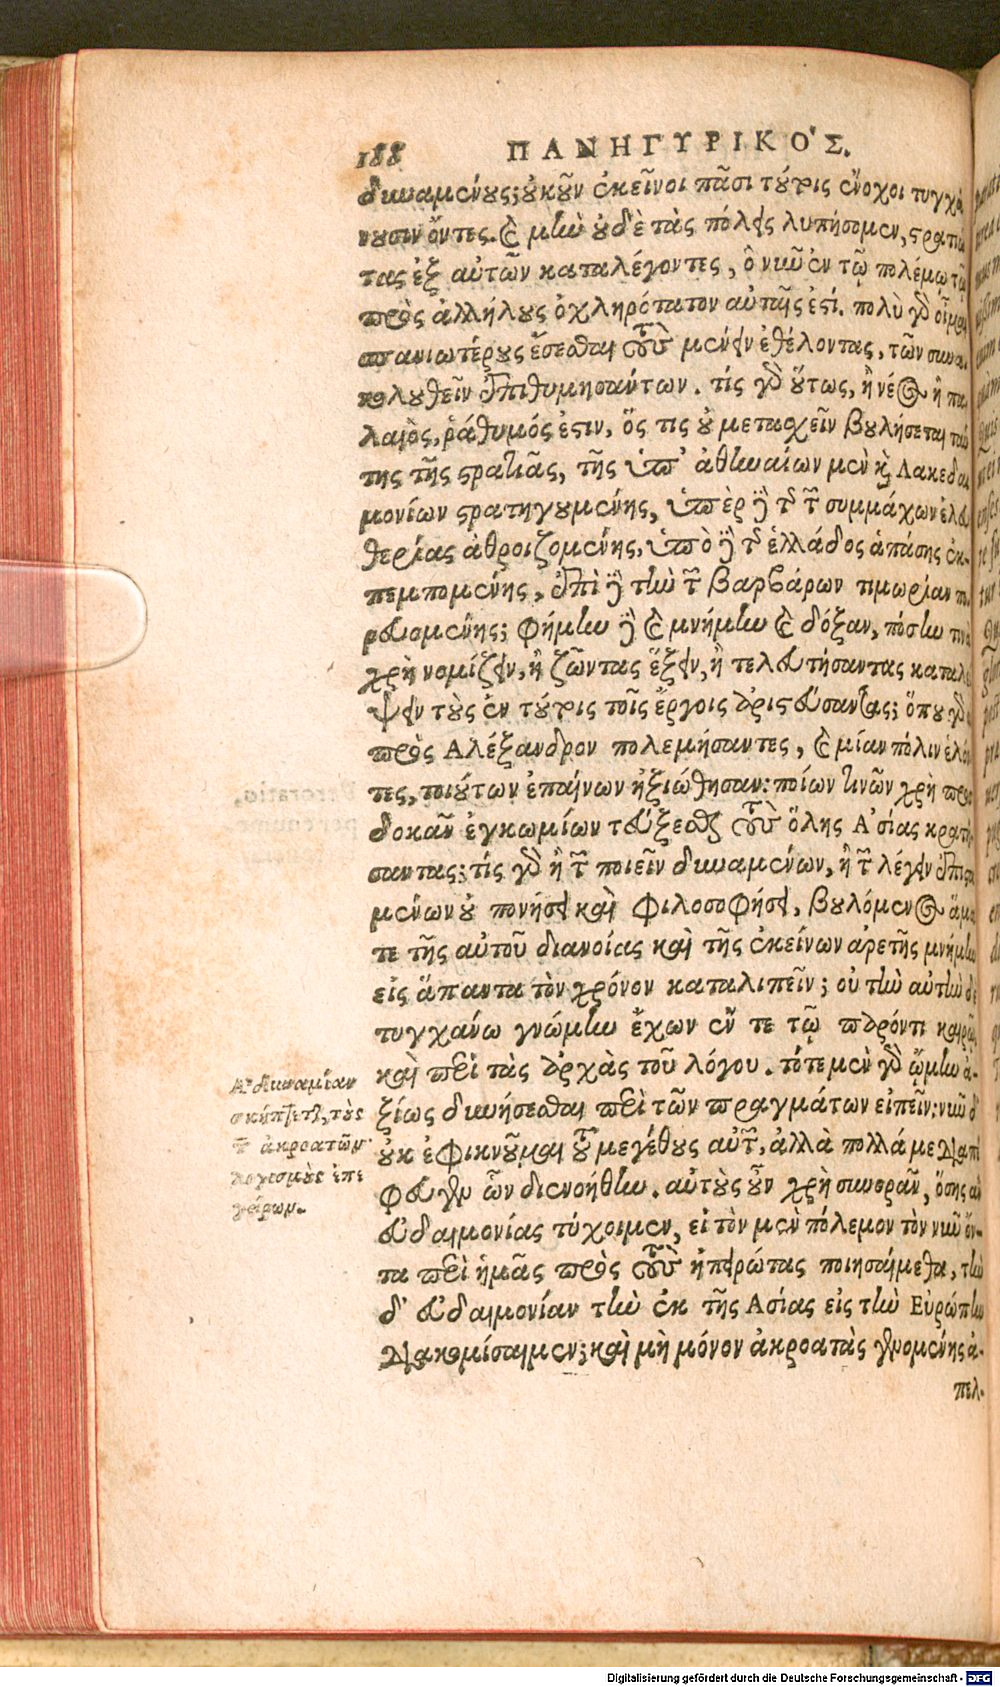 188 ΠΑΝΗΓΥΡΙΚΟ'Σ.
δυναμένους; οὐκοῦν ἐκεῖνοι πᾶσι τούτοις ἔνοχοι τυγχά
νουσιν ὄντες. καὶ μὴν οὐδὲ τὰς πόλεις λυπήσομεν, στρατιώ
τας ἐξ αὐτῶν καταλέγοντες, ὃ νῦν ἐν τῷ πολέμῳ τῷ
πρὸς ἀλλήλους ὀχληρότατον αὐταῖς ἐστί. πολὺ γὰρ οἶμαι
σπανιωτέρους ἔσεσθαι τοὺς μένειν ἐθέλοντας, τῶν συνα
κολουθεῖν ἐπιθυμησάντων. τίς γὰρ οὕτως, ἢ νέος ἢ πα
λαιὸς, ῥάθυμός ἐστιν, ὅς τις οὐ μετασχεῖν βουλήσεται ταύ
της τῆς στρατιᾶς, τῆς ὑπ' ἀθηναίων μὲν καὶ Λακεδαι
μονίων στρατηγουμένης, ὑπὲρ δὲ τῆς τῶν συμμάχων ἐλευ
θερίας ἀθροιζομένης, ὑπὸ δὲ τῆς ἑλλάδος ἁπάσης ἐκ-
πεμπομένης, ἐπὶ δὲ τὴν τῶν βαρβάρων τιμωρίαν πο
ρευομένης; φήμην δὲ καὶ μνήμην καὶ δόξαν, πόσην τινὰ
χρὴ νομίζειν, ἢ ζῶντας ἕξειν, ἢ τελευτήσαντας καταλεί
ψειν τοὺς ἐν τούτοις τοῖς ἔργοις ἀριστεύσαντας; ὅπου γὰρ οἱ
πρὸς Αλέξανδρον πολεμήσαντες, καὶ μίαν πόλιν ἑλόν
τες, τοιούτων ἐπαίνων ἠξιώθησαν: ποίων τινῶν χρὴ προσ
δοκᾶν ἐγκωμίων τεύξεσθαι τοὺς ὅλης Α'σίας κρατή
σαντας; τίς γὰρ ἢ τῶν ποιεῖν δυναμένων, ἢ τῶν λέγειν ἐπιστα
μένων οὐ πονήσει καὶ φιλοσοφήσει, βουλόμενος ἅμα
τε τῆς αὐτοῦ διανοίας καὶ τῆς ἐκείνων ἀρετῆς μνήμην
εἰς ἅπαντα τὸν χρόνον καταλιπεῖν; οὐ τὴν αὐτὴν δὲ
τυγχάνω γνώμην ἔχων ἔν τε τῷ παρόντι καιρῷ,
καὶ περὶ τὰς ἀρχὰς τοῦ λόγου. τότε μὲν γὰρ ᾤμην ἀ-
ξίως δυνήσεσθαι περὶ τῶν πραγμάτων εἰπεῖν: νῦν δ'
οὐκ ἐφικνοῦμαι τοῦ μεγέθους αὐτῶν, ἀλλὰ πολλά με διαπέ
φευγεν ὧν διενοήθην. αὐτοὺς οὖν χρὴ συνορᾶν, ὅσης ἂν
εὐδαιμονίας τύχοιμεν, εἰ τὸν μὲν πόλεμον τὸν νῦν ὄν-
τα περὶ ἡμᾶς πρὸς τοὺς ἠπειρώτας ποιησαίμεθα, τὴν
δ' εὐδαιμονίαν τὴν ἐκ τῆς Ασίας εἰς τὴν Εὐρώπην
διακομίσαιμεν; καὶ μὴ μόνον ἀκροατὰς γενομένης ἀ-
πελ-
Α'δυναμίαν
σκήπτεται, τοὺς
τῶν ἀκροατῶν
λογισμοὺς ἐπε
γείρων.
Digitalisierung gefördert durch die Deutsche Forschungsgemeinschaft - DFG